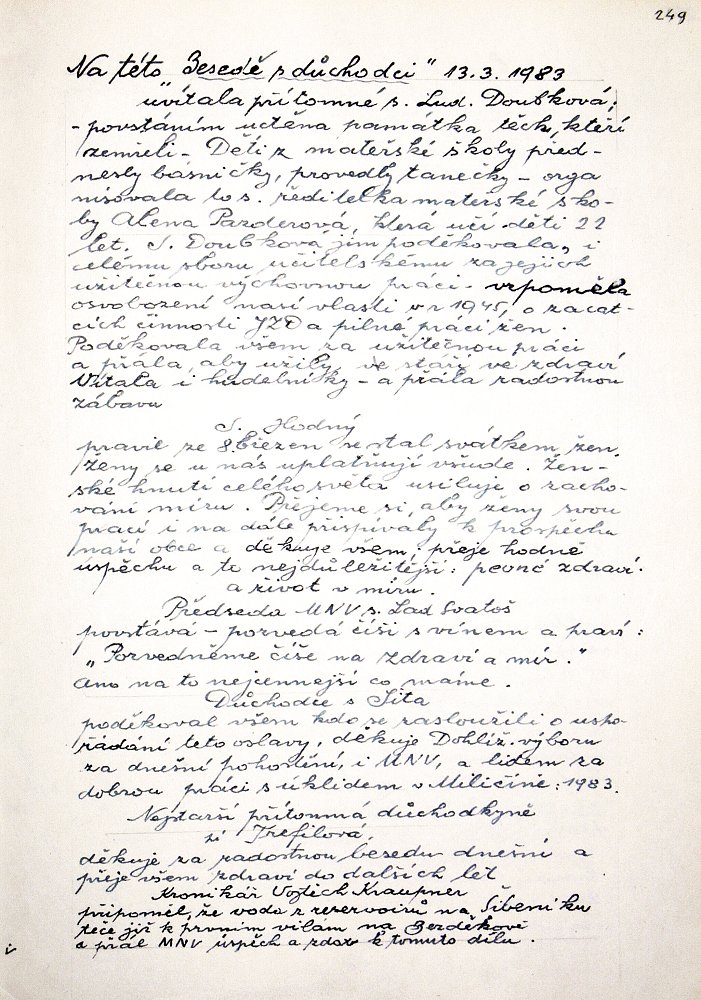 249
Na této „Besedě s důchodci" 13.3. 1983
uvítala přítomné s. Lud. Doubková;
- povstáním uctěna památka těch, kteří
zemřeli - Děti z mateřské školy před-
nesly básničky, provedly tanečky - orga
nisovala to s. ředitelka mateřské ško-
ly Alena Pazderová, která učí děti 22
let. S. Doubková jim poděkovala, i
celému sboru učitelskému za jejich
užitečnou výchovnou práci - vzpoměla
osvobození naší vlasti v r 1945, o začát-
cích činnosti JZD a pilné práci žen.
Poděkovala všem za užitečnou práci
a přála, aby užily, ve stáří ve zdraví
Vítala i hudebníky - a přála radostnou
zábavu
S. Hodný
pravil že 8. březen se stal svátkem žen,
ženy se u nás uplatňují všude. Žen-
ské hnutí celého světa usiluje o zacho-
vání míru. Přejeme si, aby ženy svou
prací i na dále přispívaly k prospěchu
naší obce a děkuje všem: přeje hodně
úspěchu a to nejdůležitější: pevné zdraví.
a život v míru.
Předseda MNV s. Lad Svatoš
povstává - pozvedá číši s vínem a praví:
„Pozvedněme číše na zdraví a mír."
Ano na to nejcennejší co máme.
Důchodce s Síta
poděkoval všem kdo se zasloužili o uspo-
řádání této oslavy, děkuje Dohlíž. výboru
za dnešní pohoštění, i MNV, a lidem za
dobrou práci s úklidem v Miličíně: 1983.
Nejstarší přítomná důchodkyně
pí Trefilová,
děkuje za radostnou besedu dnešní a
přeje všem zdraví do dalších let
Kronikář Vojtěch Kraupner
připoměl, že voda z reservoirů na Šibeníku
teče již k prvním vilám na Bezděkově
a přál MNV úspěch a zdar k tomuto dílu.